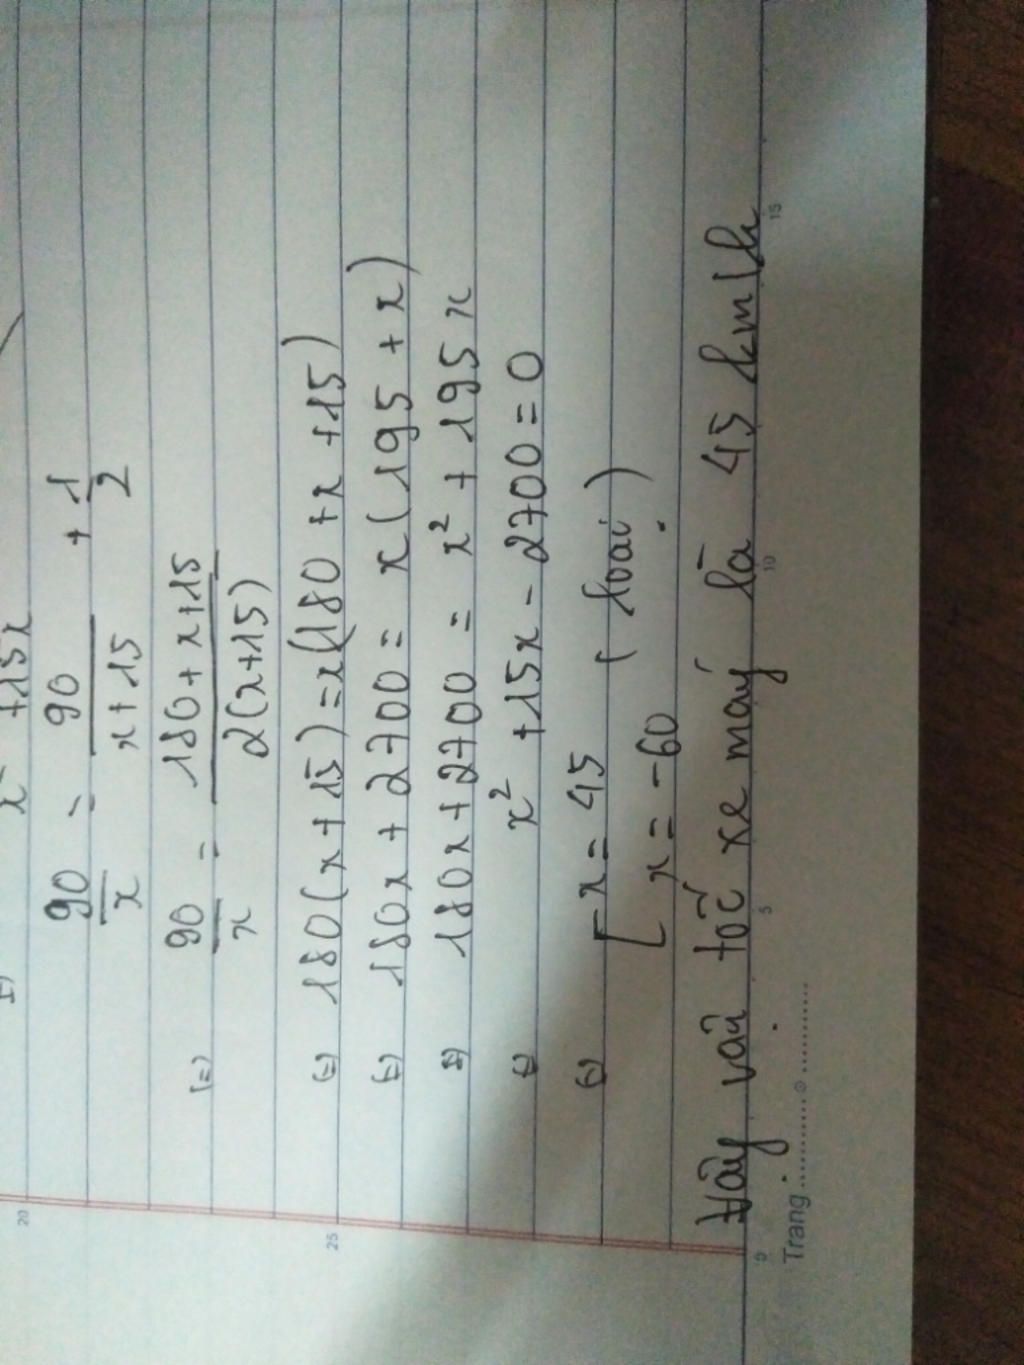 x² + 15x
90/x = 90/(x+15) + 1/2
(=) 90/x = (180+x+15)/(2(x+15))
(=) 180(x+15) = x(180+x+15)
(=) 180x + 2700 = x(195 + x)
(=) 180x + 2700 = x² + 195x
(=) x² + 15x - 2700 = 0
(=) [ x = 45
[ x = -60 (loại)
Vậy vận tốc xe máy là 45 km/h
20
25
0 5 10 15
Trang ..........⊙..........